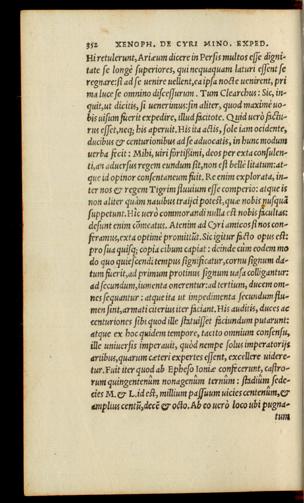 352 XENOPH. DE CYRI MINO. EXPED.
Hi retulerunt, Ariæum dicere in Persis multos esse digni-
tate se longè superiores, qui nequaquam laturi essent se
regnare: si ad se uenire uellent, ea ipsa nocte uenirent, pri
ma luce se omnino discessurum. Tum Clearchus: Sic, in-
quit, ut dicitis, si uenerimus: sin aliter, quod maximè uo-
bis uisum fuerit expedire, illud facitote. Quid uerò factu-
rus esset, neq; his aperuit. His ita actis, sole iam ocidente,
ducibus & centurionibus ad se aduocatis, in hunc modum
uerba fecit: Mihi, uiri fortissimi, deos per exta consulen-
ti, an aduersus regem eundum sit, non est belle litatum: at-
que id opinor consentaneum fuit. Re enim explorata, in-
ter nos & regem Tigrim fluuium esse comperio: atque is
non aliter quàm nauibus traijci potest, quæ nobis nusquā
suppetunt. Hic uerò commorandi nulla est nobis facultas:
desunt enim cōmeatus. Atenim ad Cyri amicos si nos con-
feramus, exta optimè promittūt. Sic igitur facto opus est:
pro sua quisq; copia cibum capiat: deinde cùm eodem mo
do quo quiescendi tempus significatur, cornu signum da-
tum fuerit, ad primum protinus signum uasa colligantur:
ad secundum, iumenta onerentur: ad tertium, ducem om-
nes sequantur: atque ita ut impedimenta secundum flu-
men sint, armati citerius iter faciant. His auditis, duces ac
centuriones sibi quod ille statuisset faciundum putarunt:
atque ex hoc quidem tempore, tacito omnium consensu,
ille uniuersis imperauit, quòd nempe solus imperatorijs
artibus, quarum cæteri expertes essent, excellere uidere-
tur. Fuit iter quod ab Epheso Ioniæ confecerunt, castro-
rum quingentenûm nonagenûm ternûm: stadiûm sede-
cies M. & L. id est, millium passuum uicies centenûm, &
amplius centū, decē & octo. Ab eo uerò loco ubi pugna-
tum